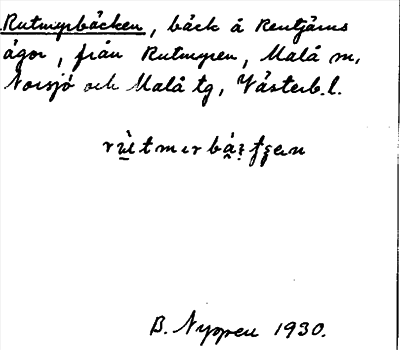 Rutmyrbäcken, bäck å Rentjärns
ägor, från Rutmyren, Malå m,
Norsjö och Malå tg, Västerb.l.
B. Nyppeu 1930.